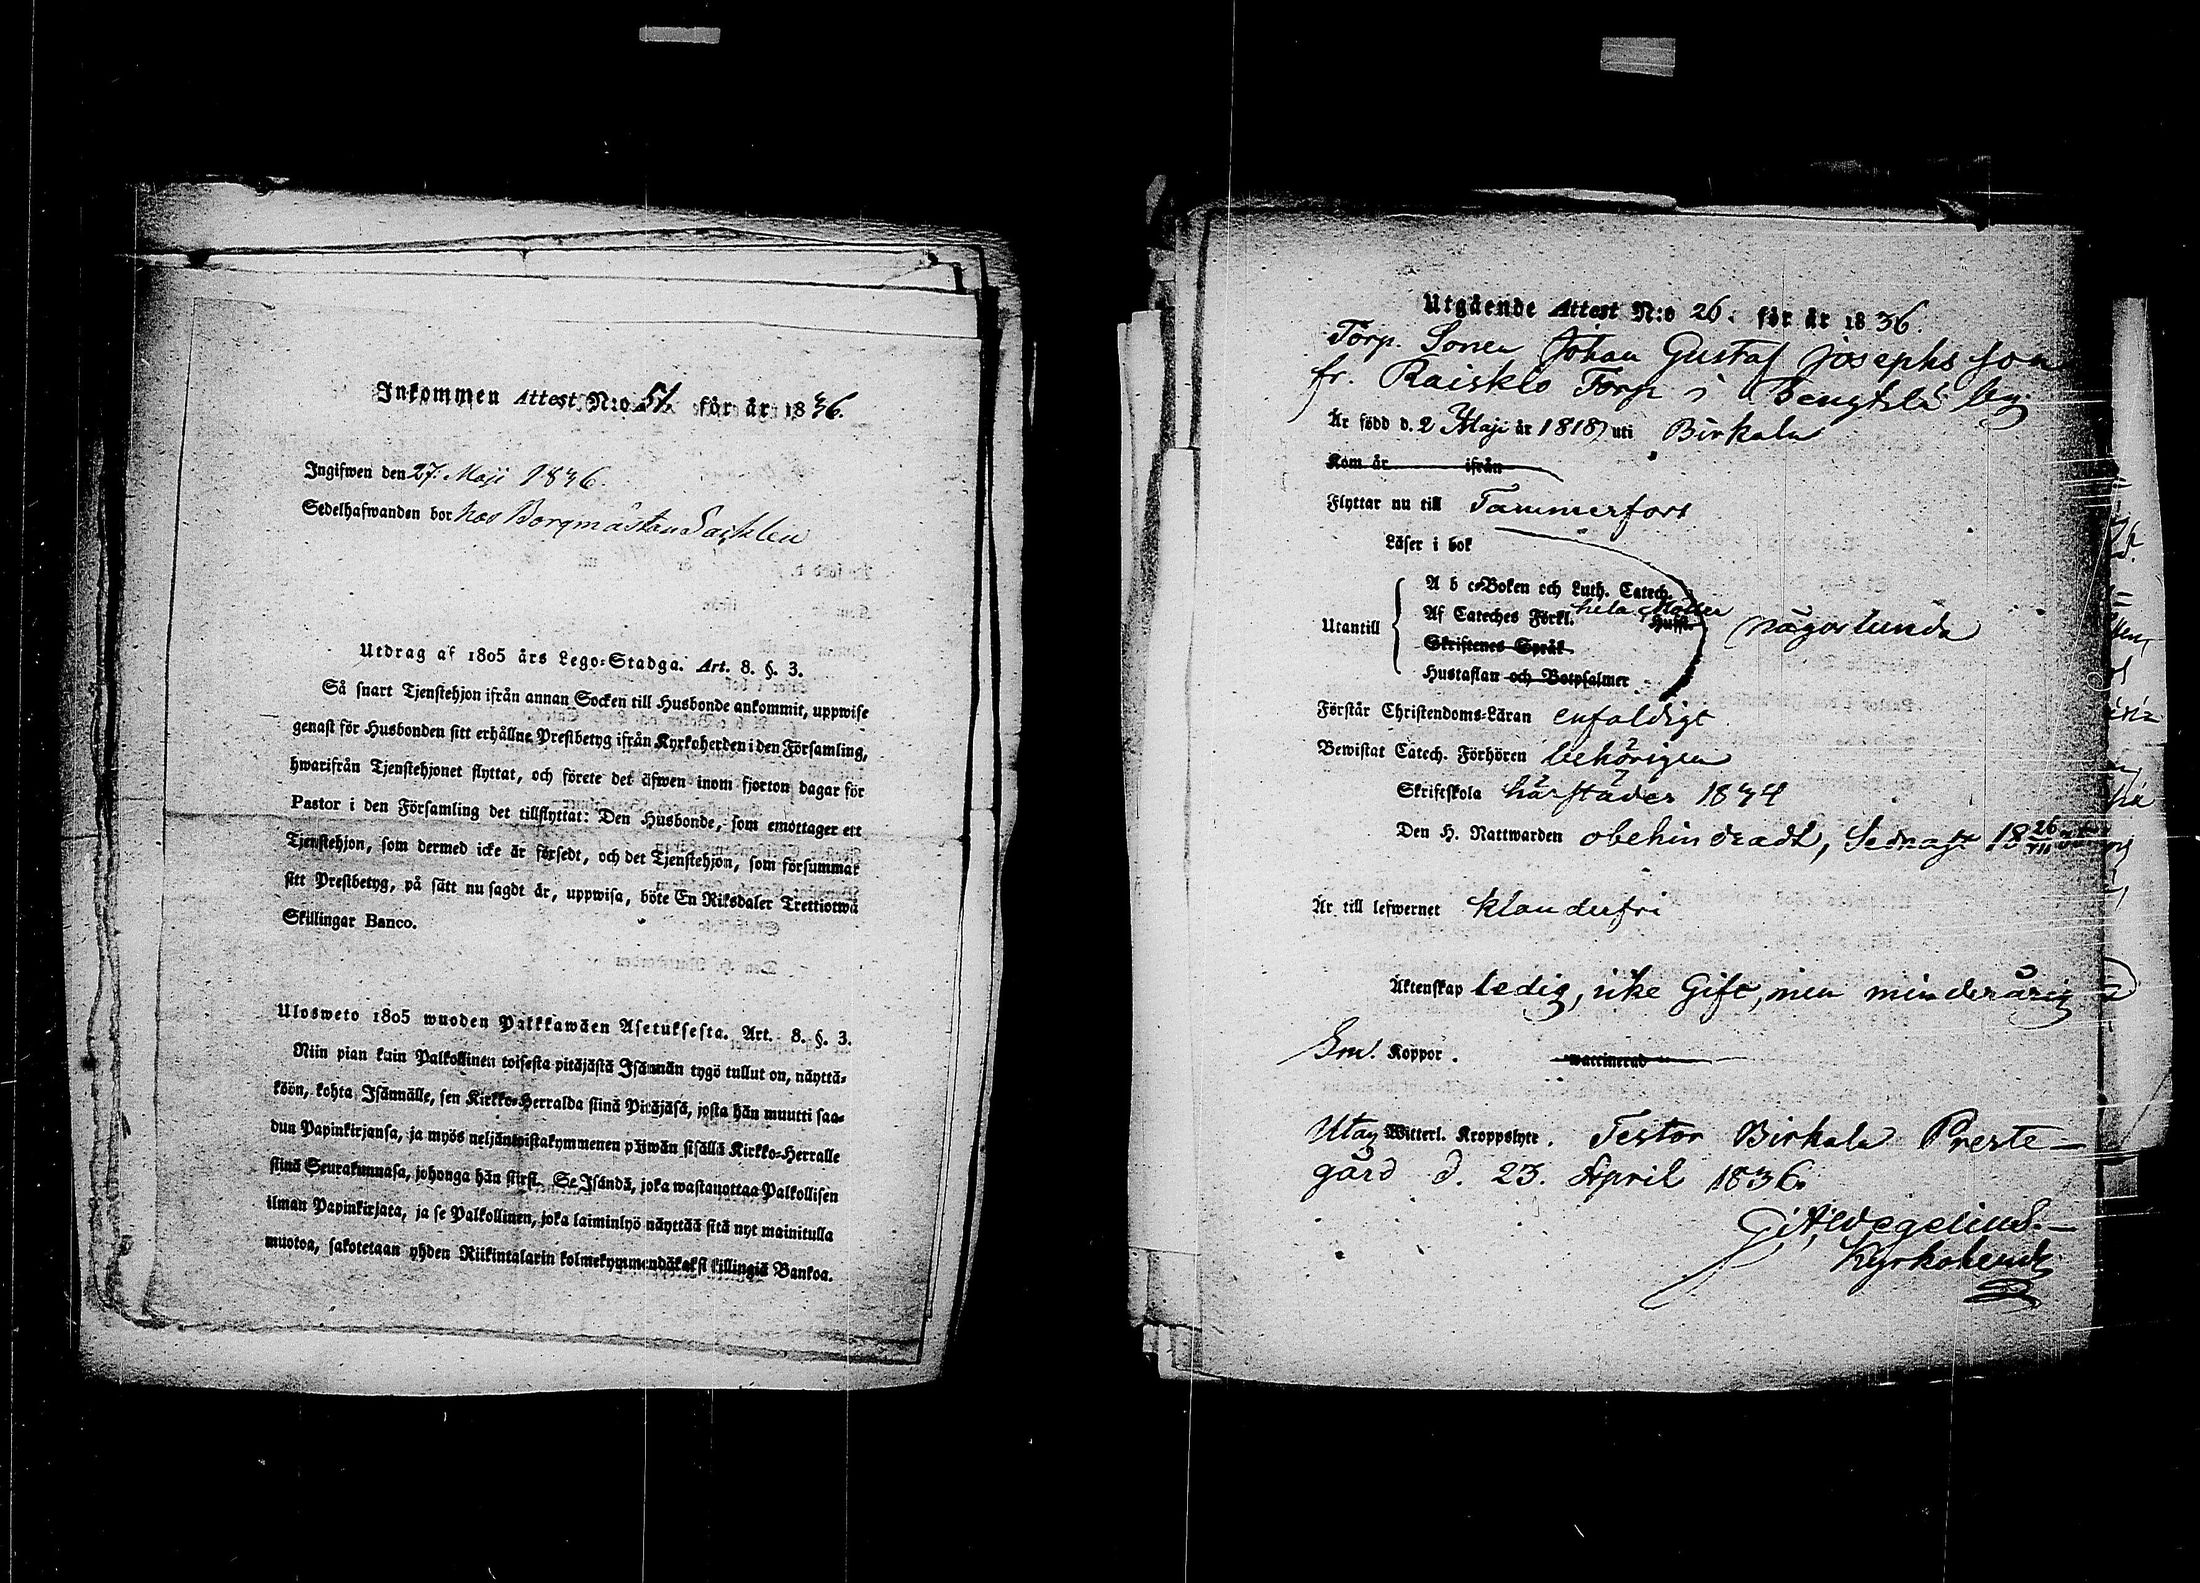 Inkommen Attest N:o 51. för år 1836.
Ingifwen den 27. Maji 1836.
Sedelhafwanden bor hos Borgmästar
Utdrag af 1805 års Lego-Stadga. Art. 8. §. 3.
Så snart Tjenstehjon ifrån annan Socken till Husbonde ankommit, uppwise
genast för Husbonden sitt erhållne Prestbetyg ifrån Kyrkoherden i den Församling,
hwarifrån Tjenstehjonet flyttat, och förete det äfwen inom fjorton dagar för
Pastor i den Församling det tillflyttat: Den Husbonde, som emottager ett
Tjenstehjon, som dermed icke är försedt, och det Tjenstehjon, som försummar
sitt Prestbetyg, på sätt nu sagdt är, uppwisa, böte En Riksdaler Trettiotwå
Skillingar Banco.
Ulosweto 1805 wuoden Palkkawäen Asetuksesta. Art. 8. §. 3.
Niin pian kuin Palkollinen toisesta pitäjästä Isännän tygö tullut on, näyttä-
köön, kohta Isännälle, sen Kirkko-Herralda siinä Pitäjäsä, josta hän muutti saa-
dun Papinkirjansa, ja myös neljäntoistakymmenen päiwän sisällä Kirkko-Herralle
siinä Seurakunnasa, johonga hän siirsi. Se Isändä, joka wastanottaa Palkollisen
ilman Papinkirjata, ja se Palkollinen, joka laiminlyö näyttää sitä nyt mainitulla
muotoa, sakotetaan yhden Riikintalarin kolmekymmendäkaksi killingiä Bankoa.
Utgående Attest N:o 26. för år 1836.
Torp. Sonen Johan Gustaf Josephs son
fr. Raisklo Torp i Bengtslä by.
Är född d. 2 Maji år 1818, uti Birkala
Kom år ifrån
Flyttar nu till Tammerfors
Läser i bok
A b c-Boken och Luth. Catech.
Af Cateches Förkl. hela Möller
Utantill någorlunda
Skriftenes Språk
Hustaflan och Botpsalmer
Förstår Christendoms-Läran enfaldigt
Bewistat Catech. Förhören behörigen
Skriftskola härstädes 1834
Den H. Nattwarden obehindradt, Sednast 18 26
Är till lefwernet klanderfri
Äktenskap ledig, icke Gift, men minderårig
Smk. Koppor. waccinerad
Utan Witterl. Kroppslyte. Testor Birkala Preste-
gård d. 23. April 1836.
G: A: Wegelius.
Kyrkoherde